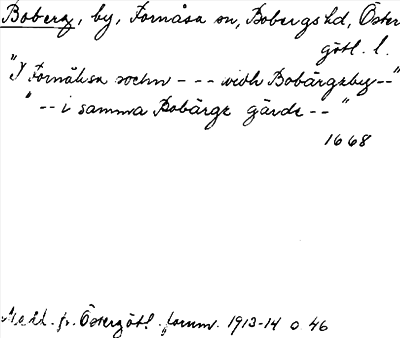 Boberg, by, Fornåsa sn, Bobergs hd, Öster
götl. l.
"I Fornåhsa sochn - - - widh Bobärgzby--"
"-- i samma Bobärgz gärde --"
1668
Medd. fr. Östergötl. fornm. 1913-14 o 46